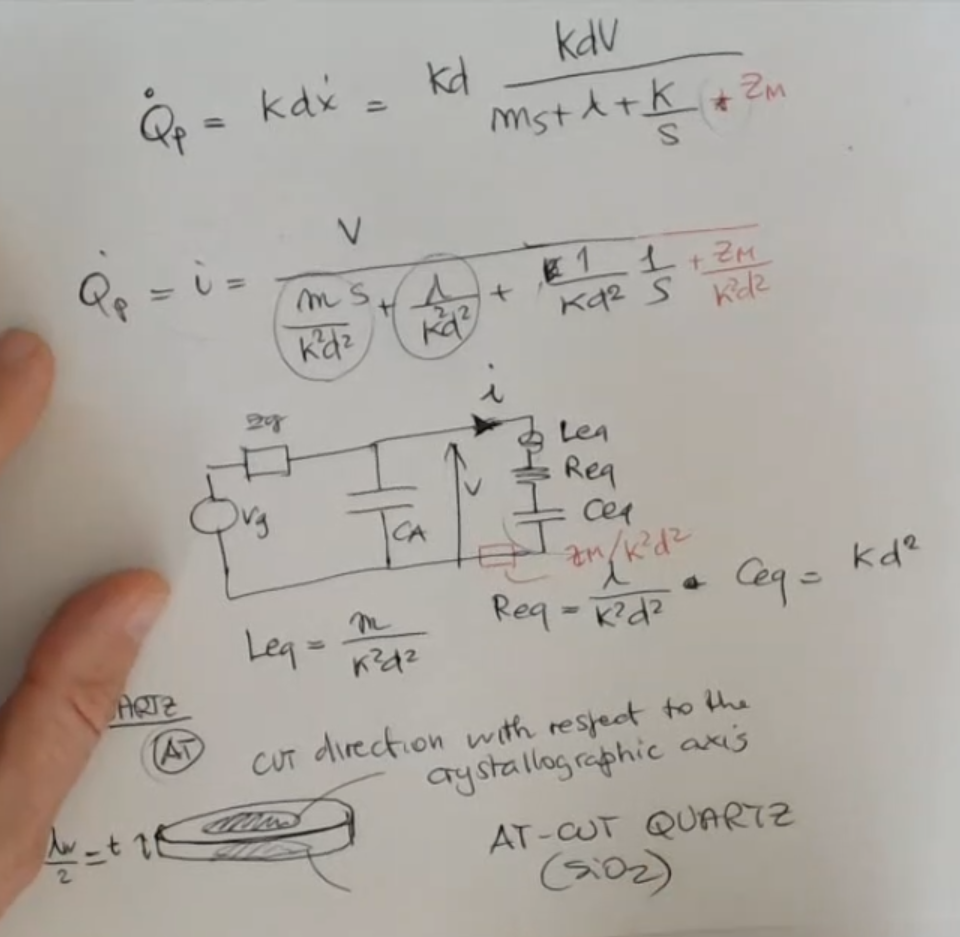 Q̇p = kdẋ = kd kdV / (ms + λ + k/s + ZM)
Q̇p = i = V / (m s/k²d² + λ/k²d² + 1/kd² 1/s + ZM/k²d²)
i
Zg
Leq
Req
Vg
CA
V
Ceq
ZM/k²d²
Leq = m/k²d²
Req = λ/k²d²
Ceq = kd²
ARTZ
AT
CUT direction with respect to the
crystallographic axis
λw/2 = t
AT-CUT QUARTZ
(SiO2)